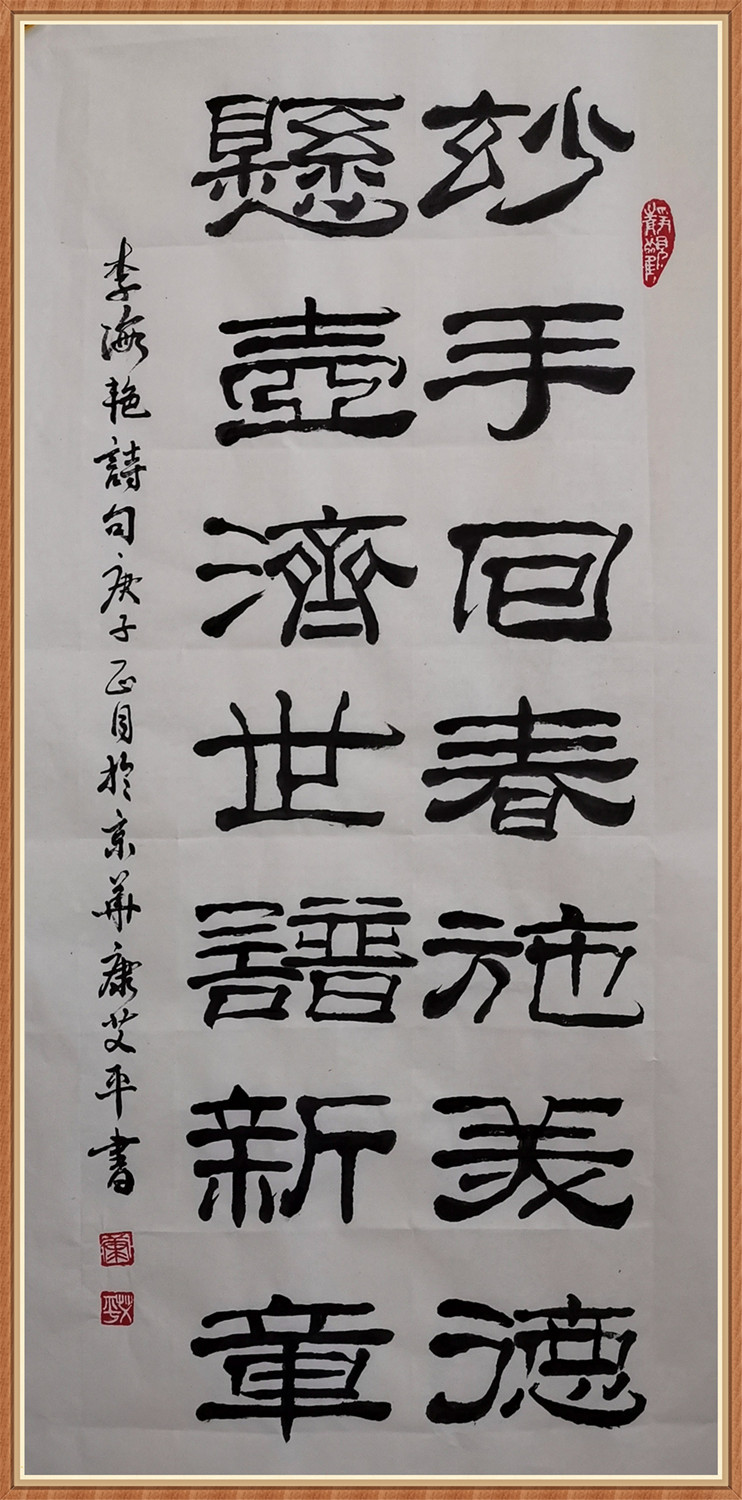 玅手回春施美德
懸壺濟世譜新章
李海艳詩句庚子正月於京華康艾平書
康
艾平